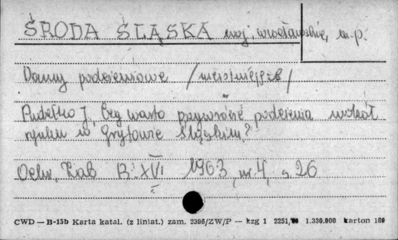 ŚRODA ŚLĄSKA woj. wrocławskie, m.p.
Domy podcieniowe /nieistniejące/
Pudełko J. Czy warto przywrócić podcienia wokół
rynku w Gryfowie Śląskim?
Ochr. Zab R. XVI 1963, nr 4, s. 26
CWD — B-15b Karta katal. (z liniat.) zam. 2306/ZW/P — kzg 1 1.330.000 karton 180